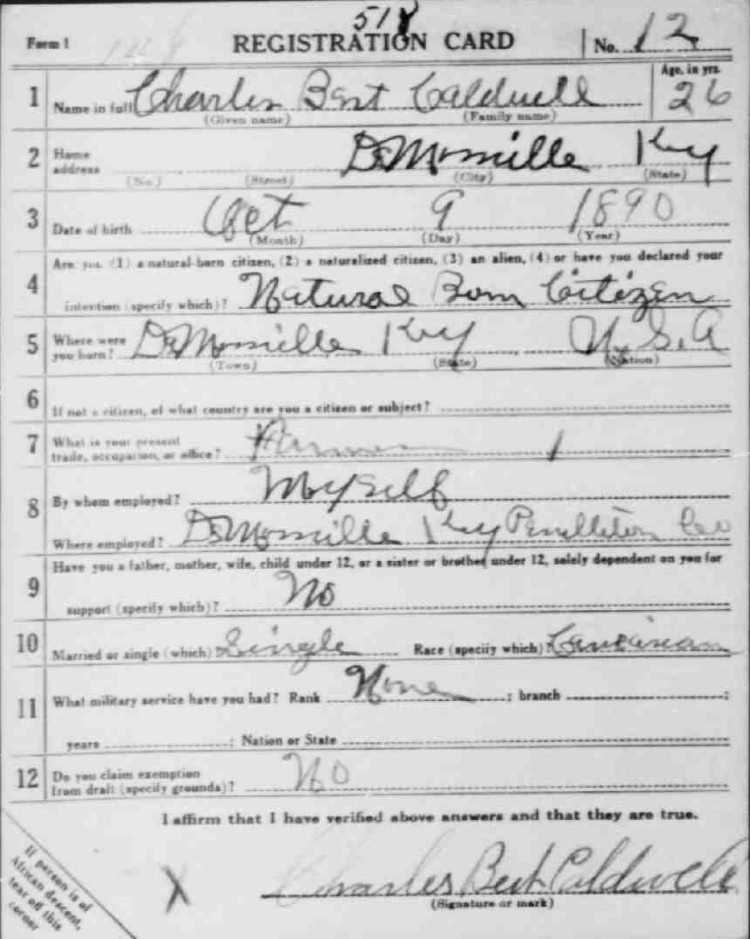 518
Form 1 REGISTRATION CARD No. 12
1 Name in full Charles Bert Caldwell Age, in yrs. 26
(Given name) (Family name)
2 Home address DeMossville Ky
(No.) (Street) (City) (State)
3 Date of birth Oct 9 1890
(Month) (Day) (Year)
Are you (1) a natural-born citizen, (2) a naturalized citizen, (3) an alien, (4) or have you declared your
4 intention (specify which)? Natural Born Citizen
5 Where were you born? DeMossville Ky U.S.A
(Town) (State) (Nation)
6 If not a citizen, of what country are you a citizen or subject?
7 What is your present trade, occupation, or office? Farmer
8 By whom employed? Myself
Where employed? DeMossville Ky Pendleton Co
9 Have you a father, mother, wife, child under 12, or a sister or brother under 12, solely dependent on you for
support (specify which)? No
10 Married or single (which) Single Race (specify which) Caucasian
11 What military service have you had? Rank None ; branch ;
years ; Nation or State
12 Do you claim exemption from draft (specify grounds)? No
I affirm that I have verified above answers and that they are true.
X Charles Bert Caldwell
(Signature or mark)
If person is of
African descent,
tear off this
corner